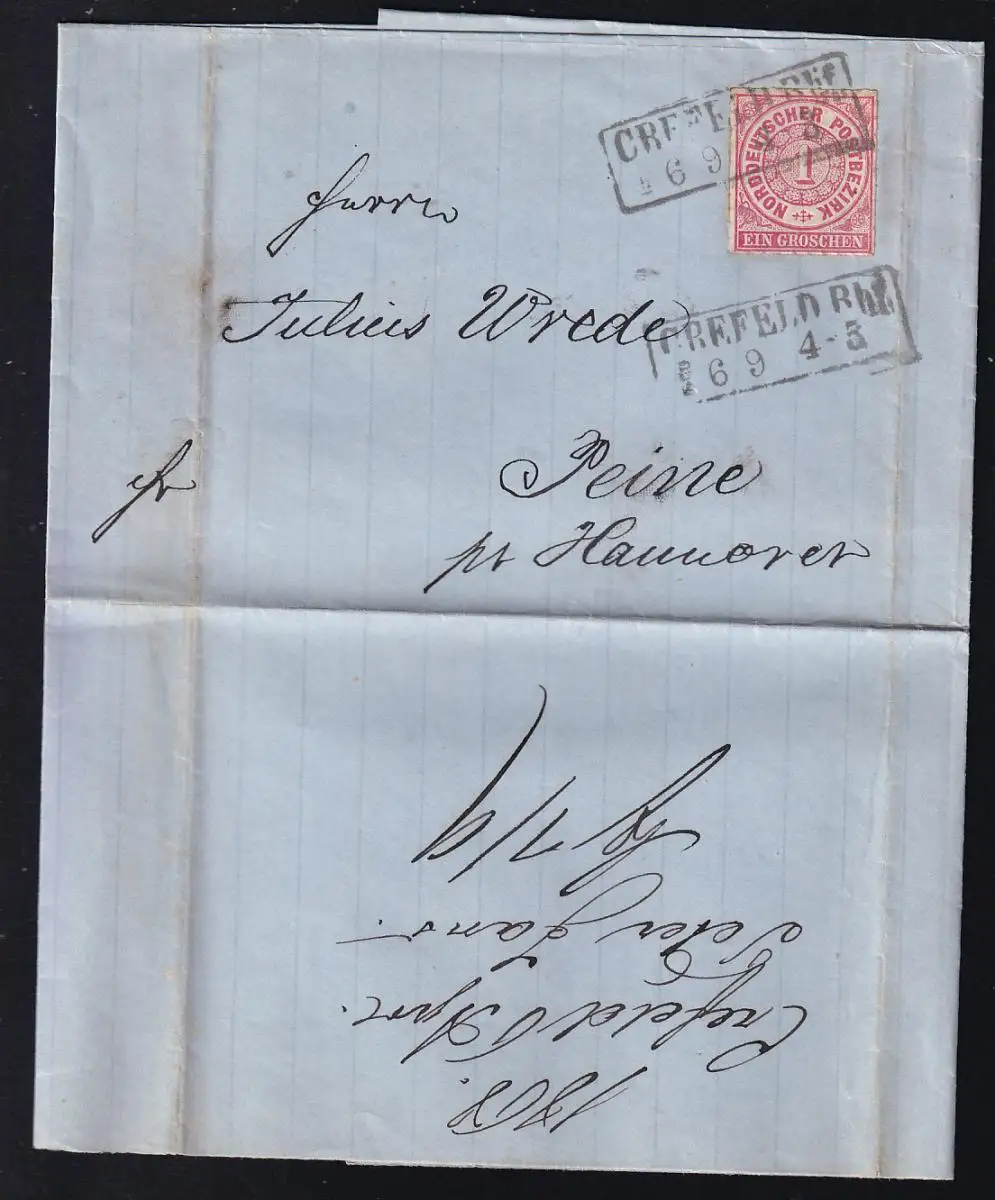 CREFELD Bhf.
6 9
NORDDEUTSCHER POSTBEZIRK
1
EIN GROSCHEN
Herrn
Julius Wrede
CREFELD Bhf.
6 9 4-5
fr
Peine
pr Hannover
1868.
Crefeld